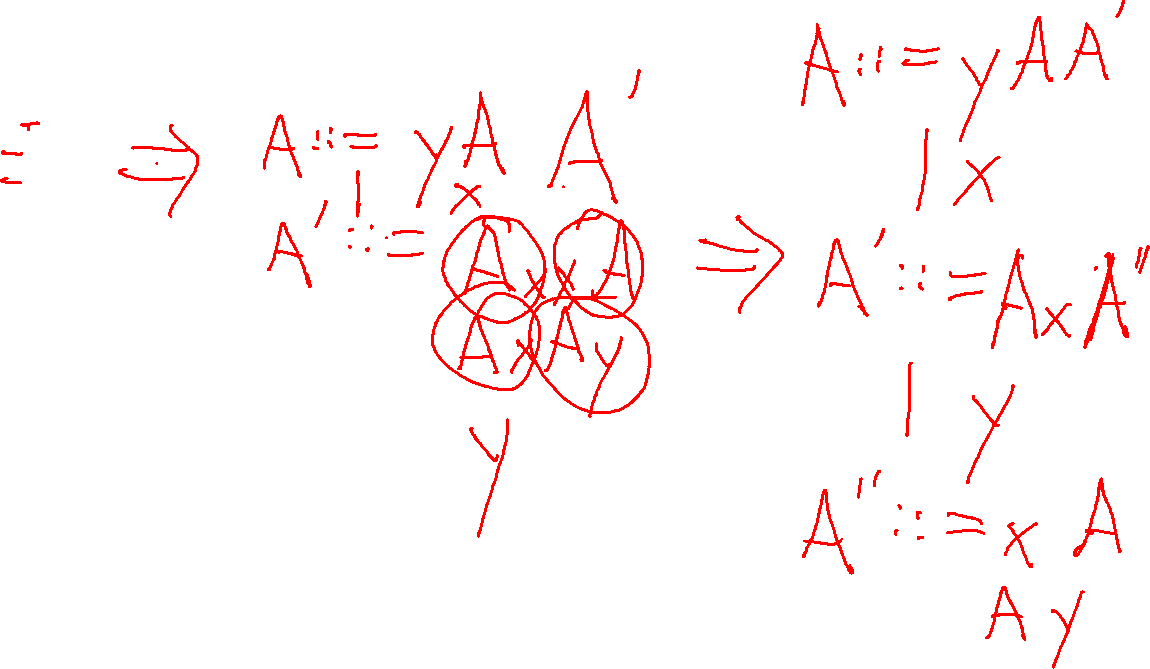 ⇒ A ::= yA A'
| x
A' ::= Ax xA
AxAy
y
⇒ A ::= yAA'
| x
A' ::= AxA''
| y
A'' ::= x A
Ay